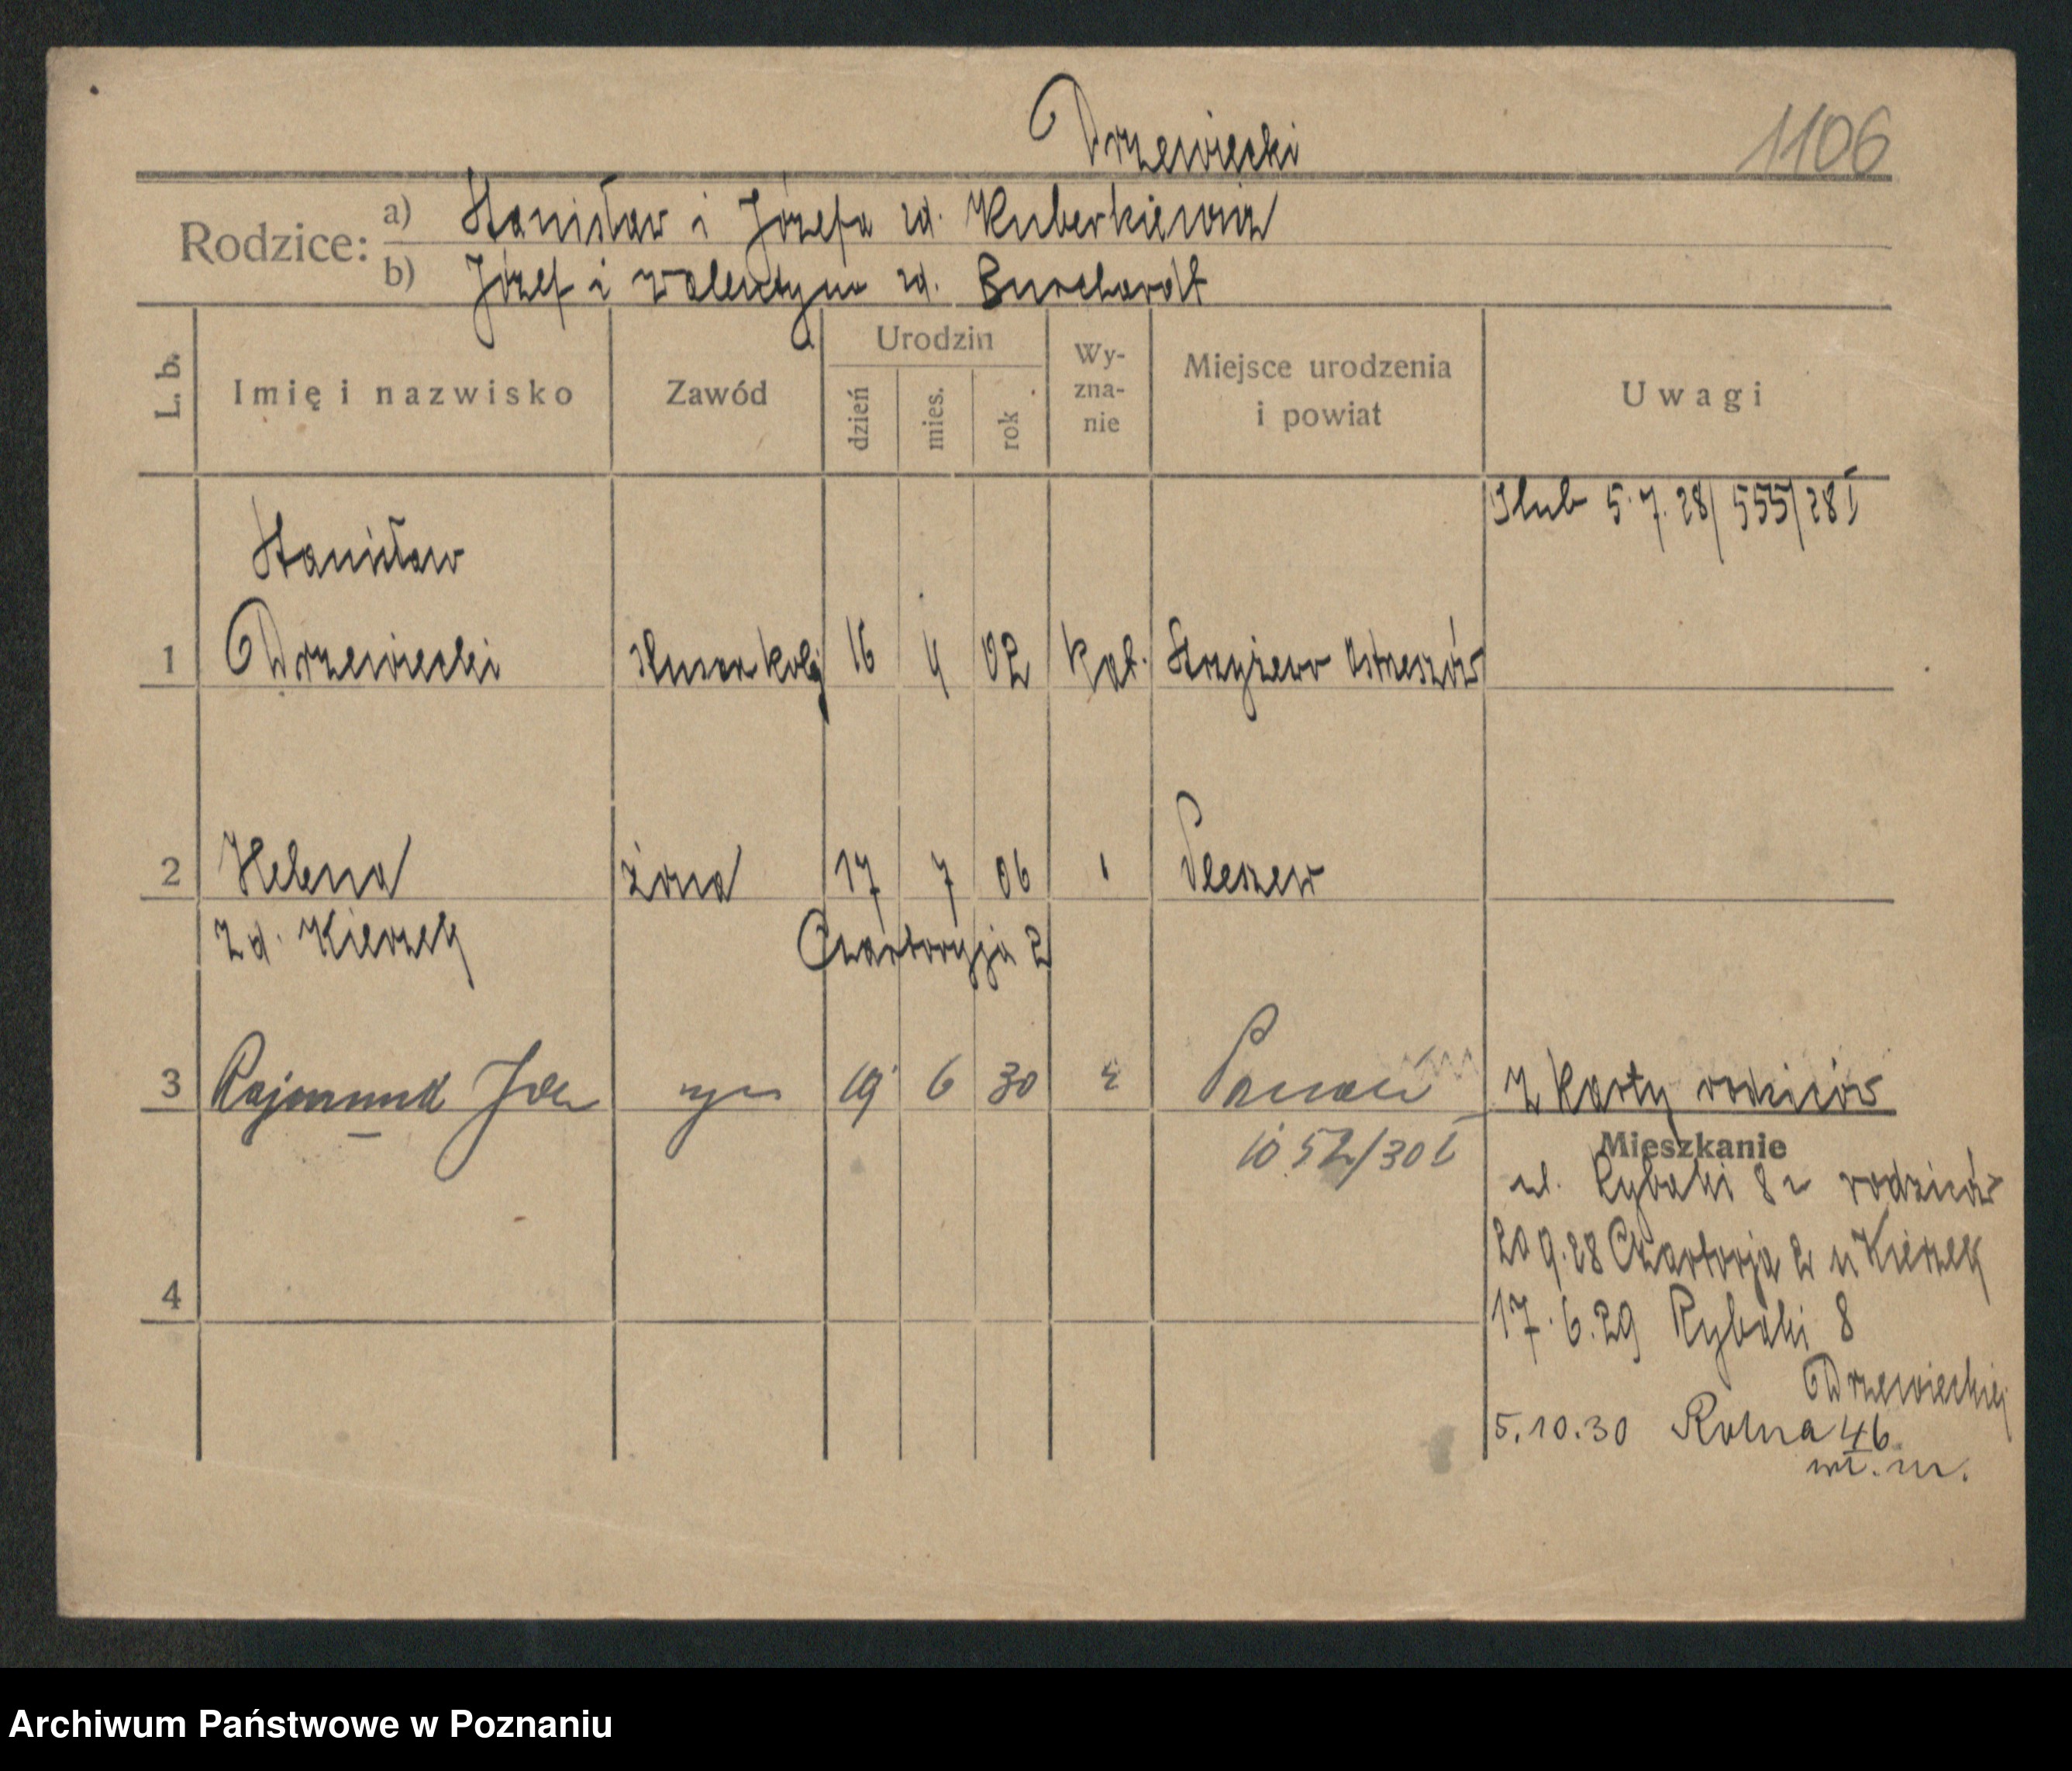 Drzewiecki
1106
Rodzice:
a) Stanisław i Józefa zd. Kuberkiewicz
b) Józef i Walentyna zd. Burchardt
L. b.
Imię i nazwisko
Zawód
Urodzin
dzień
mies.
rok
Wy-
zna-
nie
Miejsce urodzenia
i powiat
Uwagi
Ślub 5.7.28/555/28 I
Stanisław
1 Drzewiecki ślusar kolej 16 4 02 Kat. Strzyżew Ostrzeszów
2 Helena żona 17 7 06 Pleszew
zd. Kierzek
Czartorja 2
3 Rajmund syn 19 6 30 Poznań
Z karty rodziców
1052/30 I
Mieszkanie
ul. Rybaki 8 u rodziców
20.9.28 Czartorja 2 u Kierzek
4
17.6.29 Rybaki 8
Drzewieckiej
5.10.30 Rolna 46
wł. m.
Archiwum Państwowe w Poznaniu